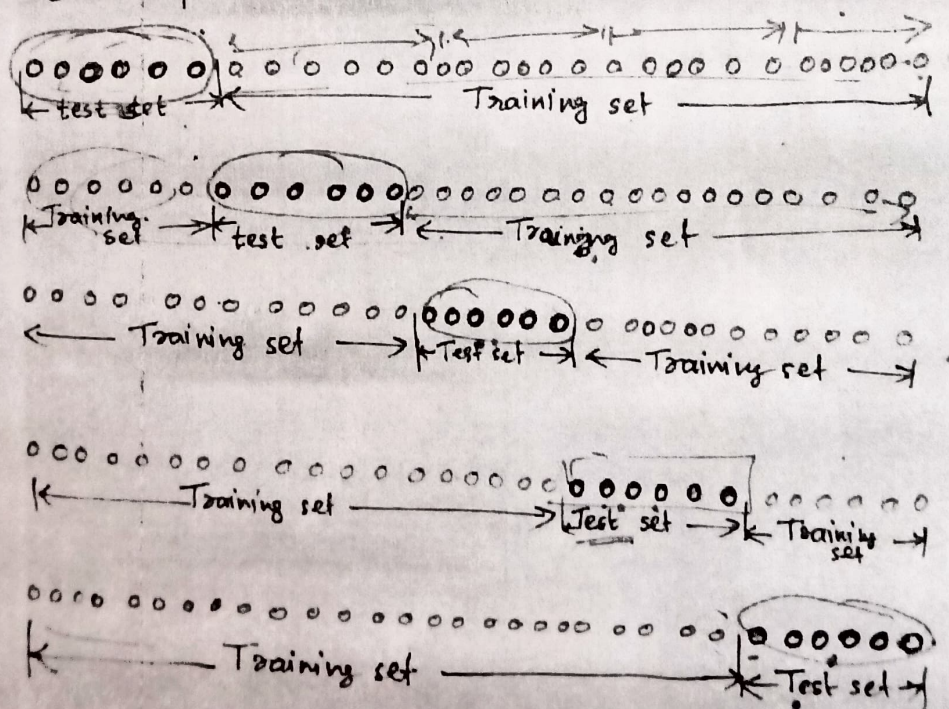 test set Training set
Training set test set Training set
Training set Test set Training set
Training set Test set Training set
Training set Test set